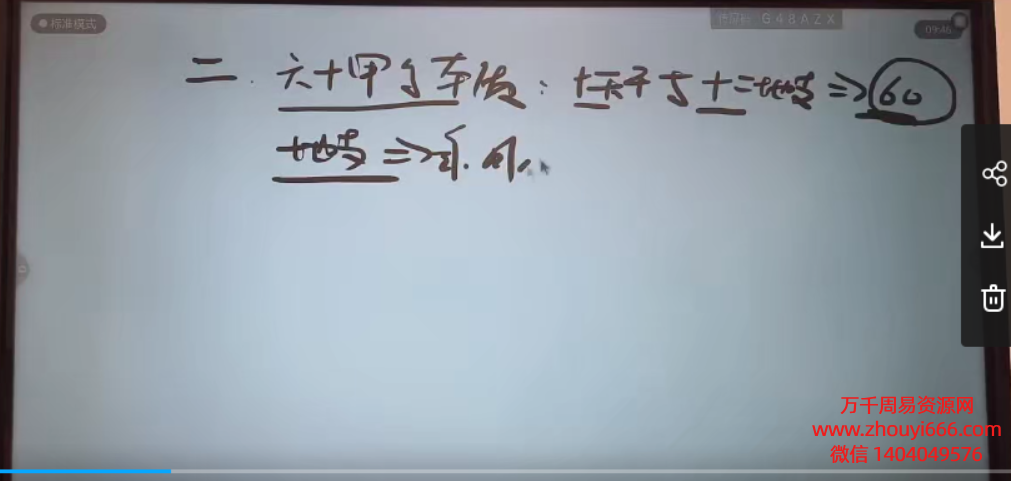 标准模式
G48AZX
09:46
二. 六十甲子车法：十天干与十二地支⇒60
地支⇒
万千周易资源网
www.zhouyi666.com
微信 1404049576